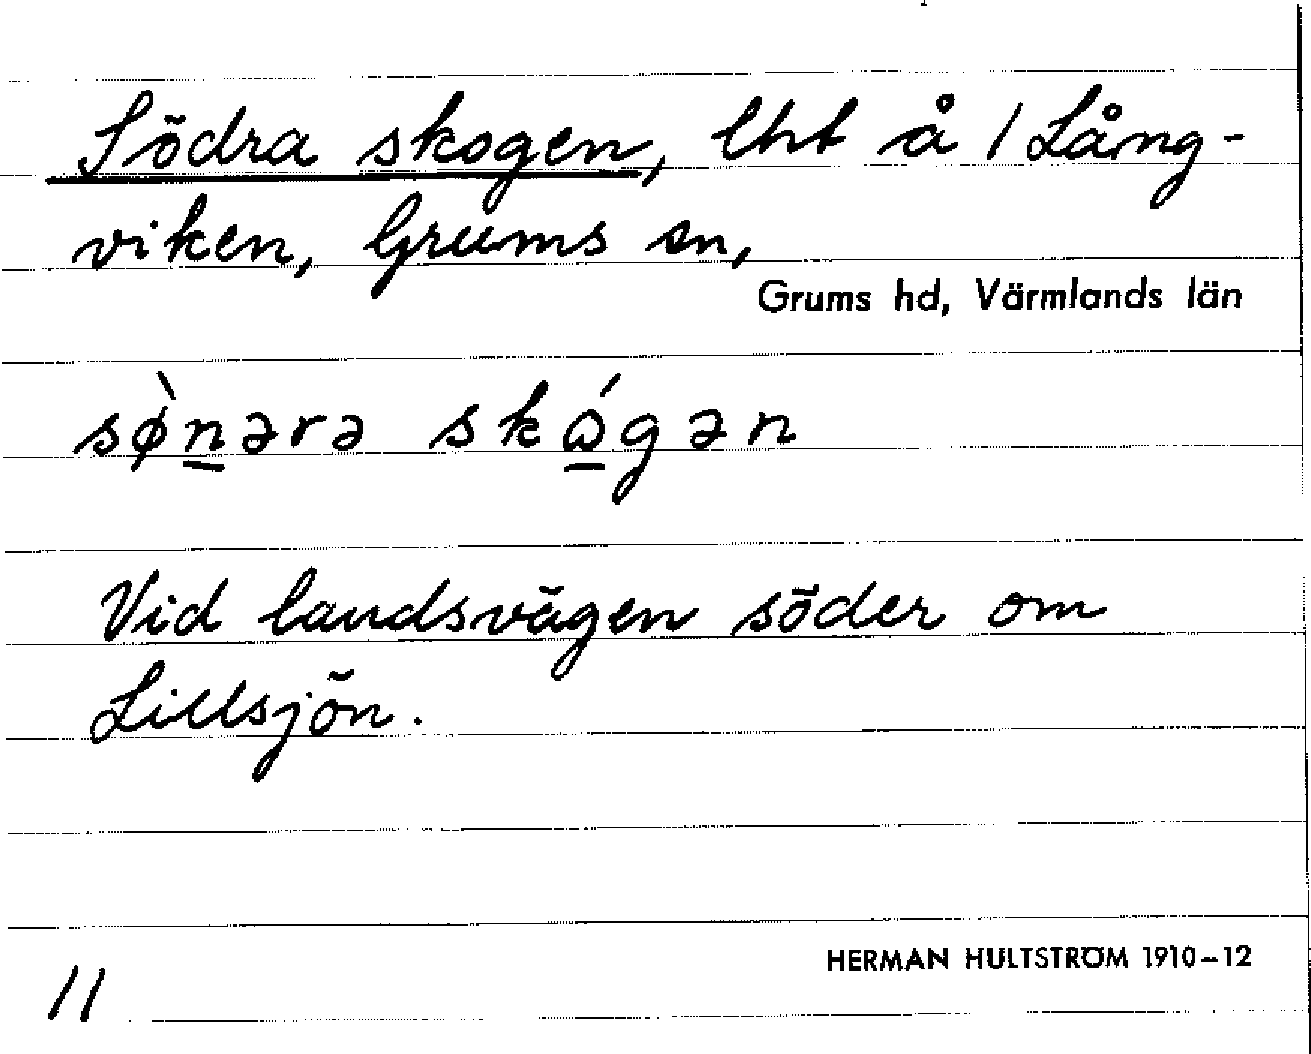 Södra skogen, lht å 1 Lång-
viken, Grums sn,
Grums hd, Värmlands län
sø̀n̲ərə skó̲gən
Vid landsvägen söder om
Lillsjön.
HERMAN HULTSTRÖM 1910–12
11